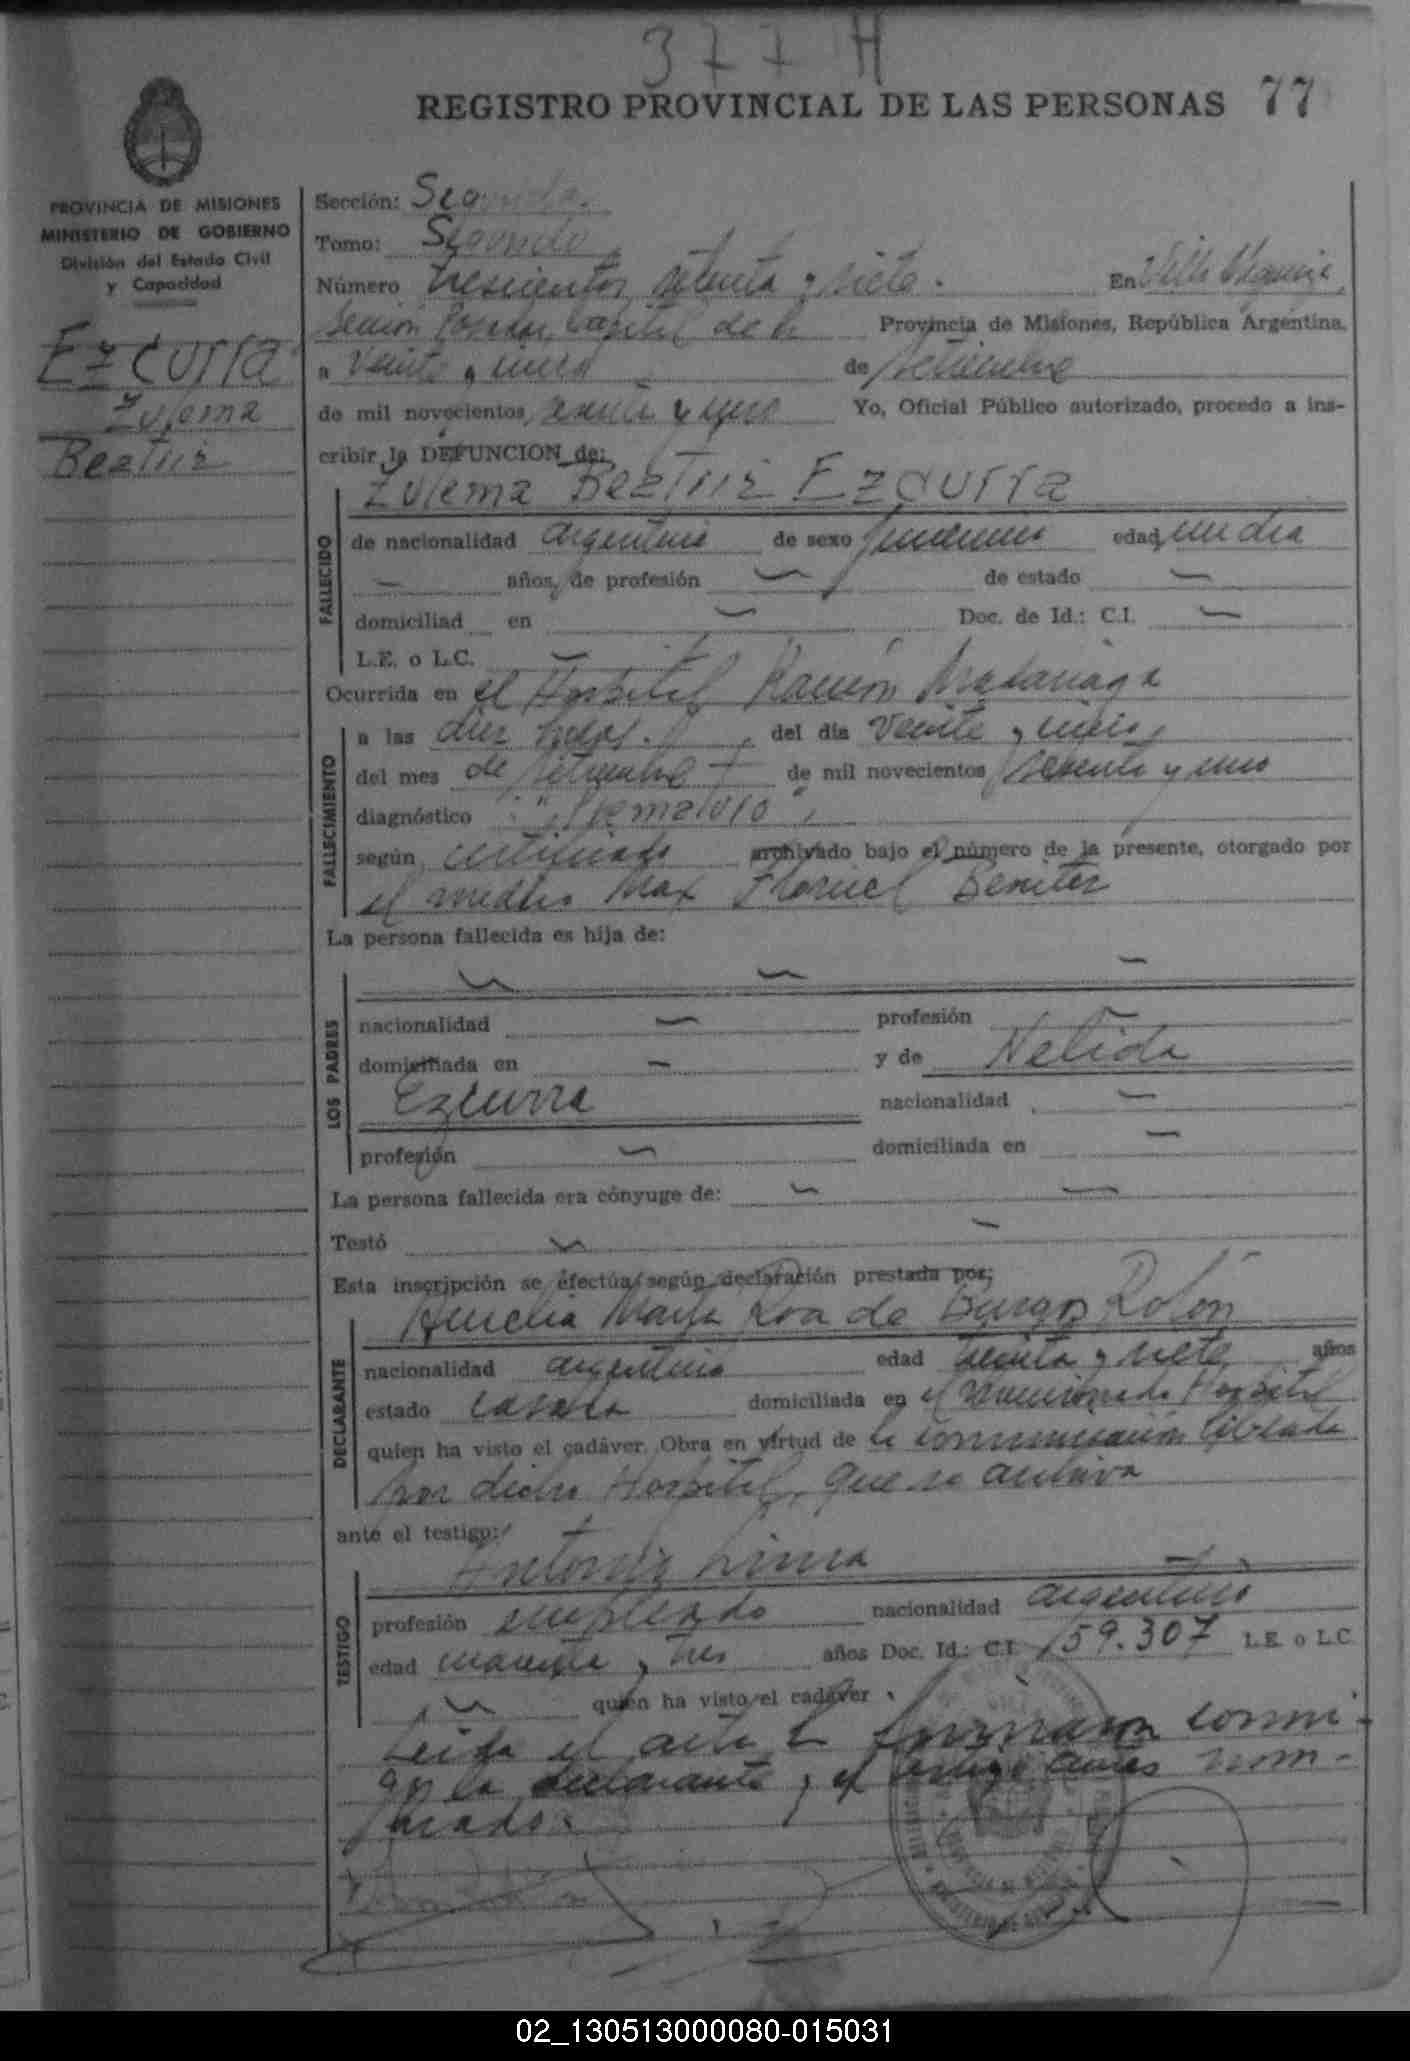 377 H
REGISTRO PROVINCIAL DE LAS PERSONAS 77
PROVINCIA DE MISIONES
MINISTERIO DE GOBIERNO
División del Estado Civil
y Capacidad
Ezcurra
Zulema
Beatriz
Sección: Segunda.
Tomo: Segundo
Número trescientos setenta y siete. En Villa Urquiza,
Sección Posadas, Capital de la Provincia de Misiones, República Argentina,
a veinte y de setiembre
de mil novecientos sesenta y uno Yo, Oficial Público autorizado, procedo a ins-
cribir la DEFUNCION de:
Zulema Beatriz Ezcurra
FALLECIDO
de nacionalidad argentina de sexo femenino edad un día
— años, de profesión — de estado —
domiciliad en — Doc. de Id.: C.I. —
L.E. o L.C. —
Ocurrida en el Hospital Ramón Madariaga
FALLECIMIENTO
a las diez horas. del día veinte y
del mes de setiembre de mil novecientos sesenta y uno
diagnóstico "Prematuro",
según certificado archivado bajo el número de la presente, otorgado por
el médico Max Benitez
La persona fallecida es hija de:
LOS PADRES
— — —
nacionalidad — profesión —
domiciliada en — y de Nelida
Ezcurra nacionalidad —
profesión — domiciliada en —
La persona fallecida era cónyuge de: — —
Testó — —
Esta inscripción se efectúa según declaración prestada por:
Amelia Roa de Burgos Rolón
DECLARANTE
nacionalidad argentina edad treinta y siete años
estado casada domiciliada en el mencionado Hospital
quien ha visto el cadáver. Obra en virtud de la comunicación librada
por dicho Hospital, que se archiva
ante el testigo:
Antonio Lima
TESTIGO
profesión empleado nacionalidad argentino
edad cuarenta y tres años Doc. Id.: C.I. 159.307 L.E. o L.C.
— quien ha visto el cadáver.
Leida el acta la firmaron conmi-
go la declarante y el testigo antes nom-
brados.
02_130513000080-015031